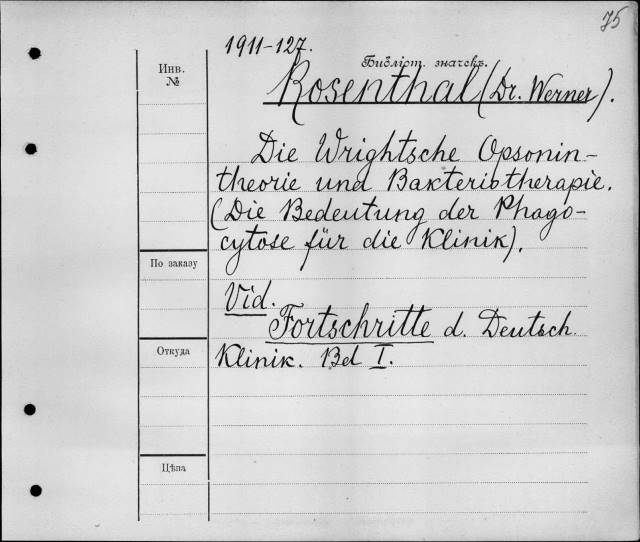 75
1911-127.
Инв.
№
Библіот. значекъ.
Rosenthal (Dr. Werner).
Die Wrightsche Opsonin-
theorie und Bakteriotherapie.
(Die Bedeutung der Phago-
cytose für die Klinik).
По заказу
Vid.
Fortschritte d. Deutsch.
Откуда
Klinik. Bd I.
Цѣна